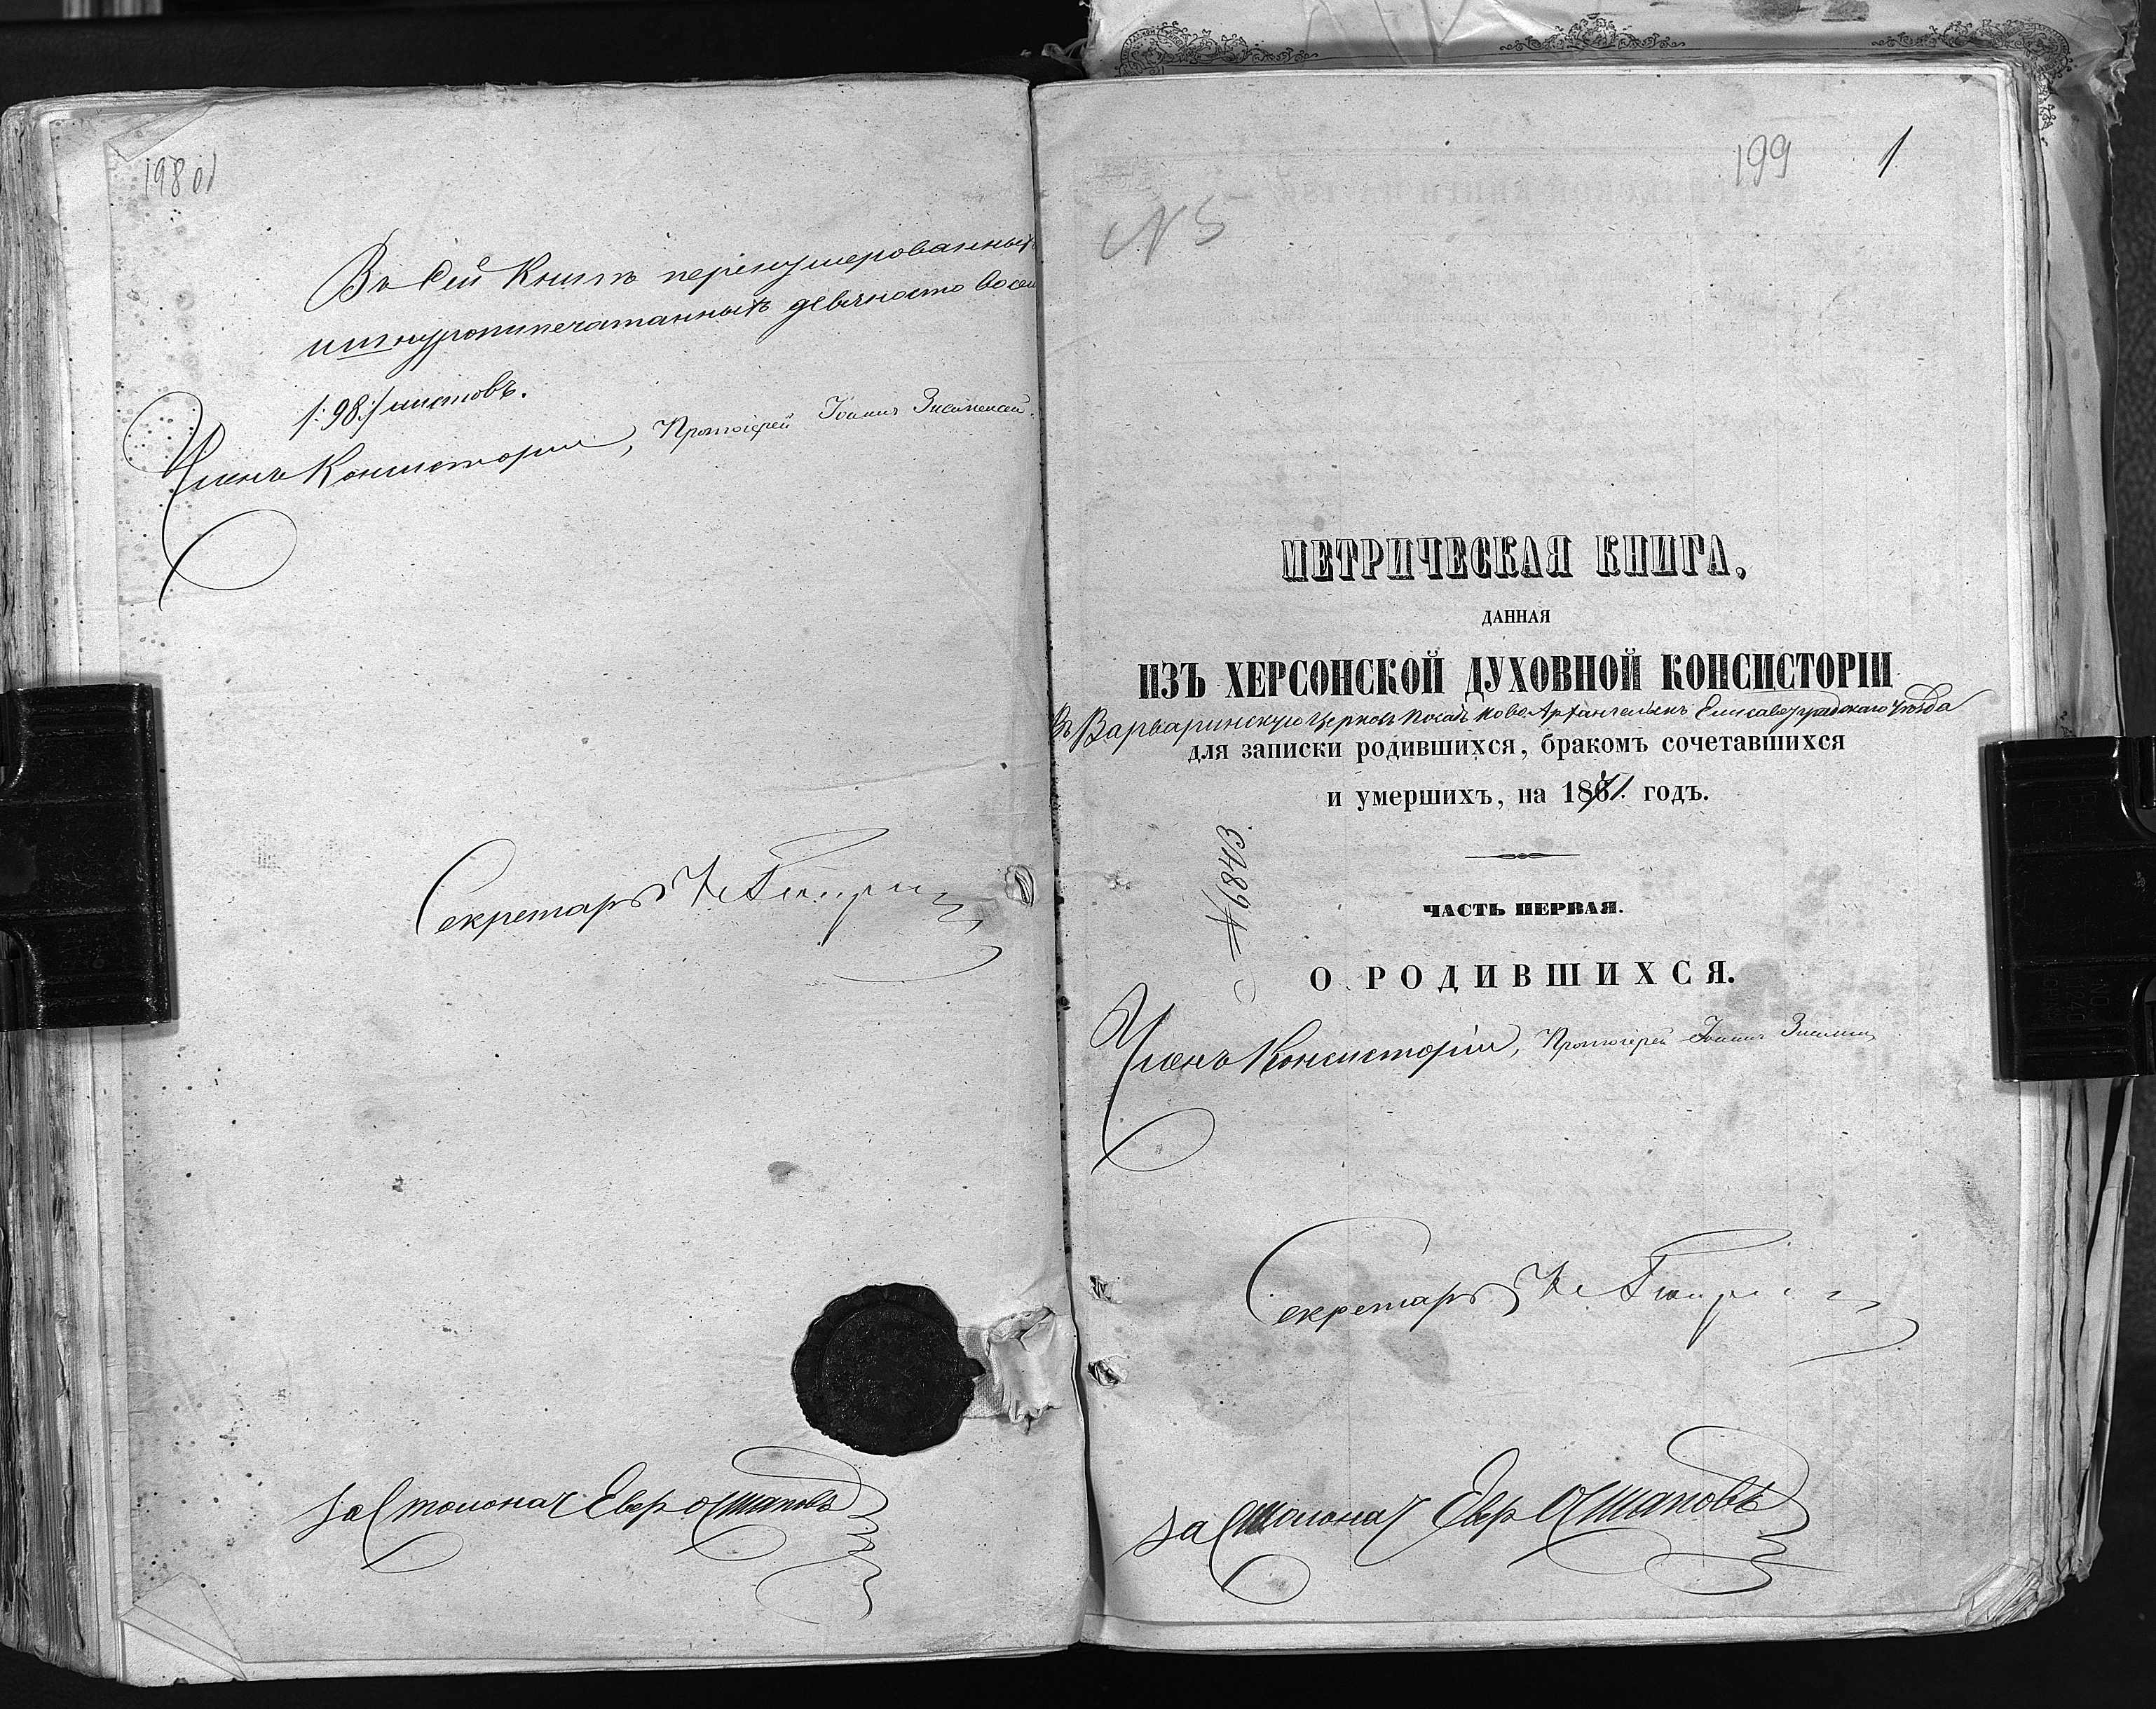 198 об
Въ сей Книгѣ перенумерованныхъ
и шнуропипечатанныхъ девяносто восем
/:98:/ листовъ.
Членъ Консисторіи, Протоіерей Іоаннъ
Секретарь
За Столонач. Евр Остаповъ
199 1
N 5
МЕТРИЧЕСКАЯ КНИГА,
ДАННАЯ
ИЗЪ ХЕРСОНСКОЙ ДУХОВНОЙ КОНСИСТОРІИ
въ Варваринскую церковь посада Ново-Архангельскъ Елисаветградскаго Уѣзда
для записки родившихся, бракомъ сочетавшихся
и умершихъ, на 1871 годъ.
№ 6843
ЧАСТЬ ПЕРВАЯ.
О РОДИВШИХСЯ.
Членъ Консисторіи, Протоіерей Іоаннъ
Секретарь
За Столонач Евр Остаповъ